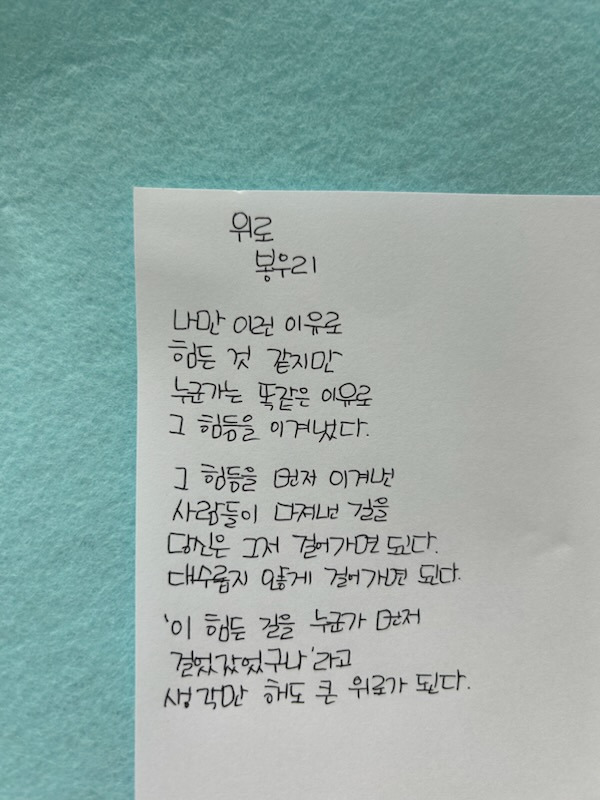 위로
봉우리
나만 이런 이유로
힘든 것 같지만
누군가는 똑같은 이유로
그 힘듦을 이겨냈다.
그 힘듦을 먼저 이겨낸
사람들이 다져낸 길을
당신은 그저 걸어가면 된다.
대수롭지 않게 걸어가면 된다.
'이 힘든 길을 누군가 먼저
걸었갔었구나'라고
생각만 해도 큰 위로가 된다.